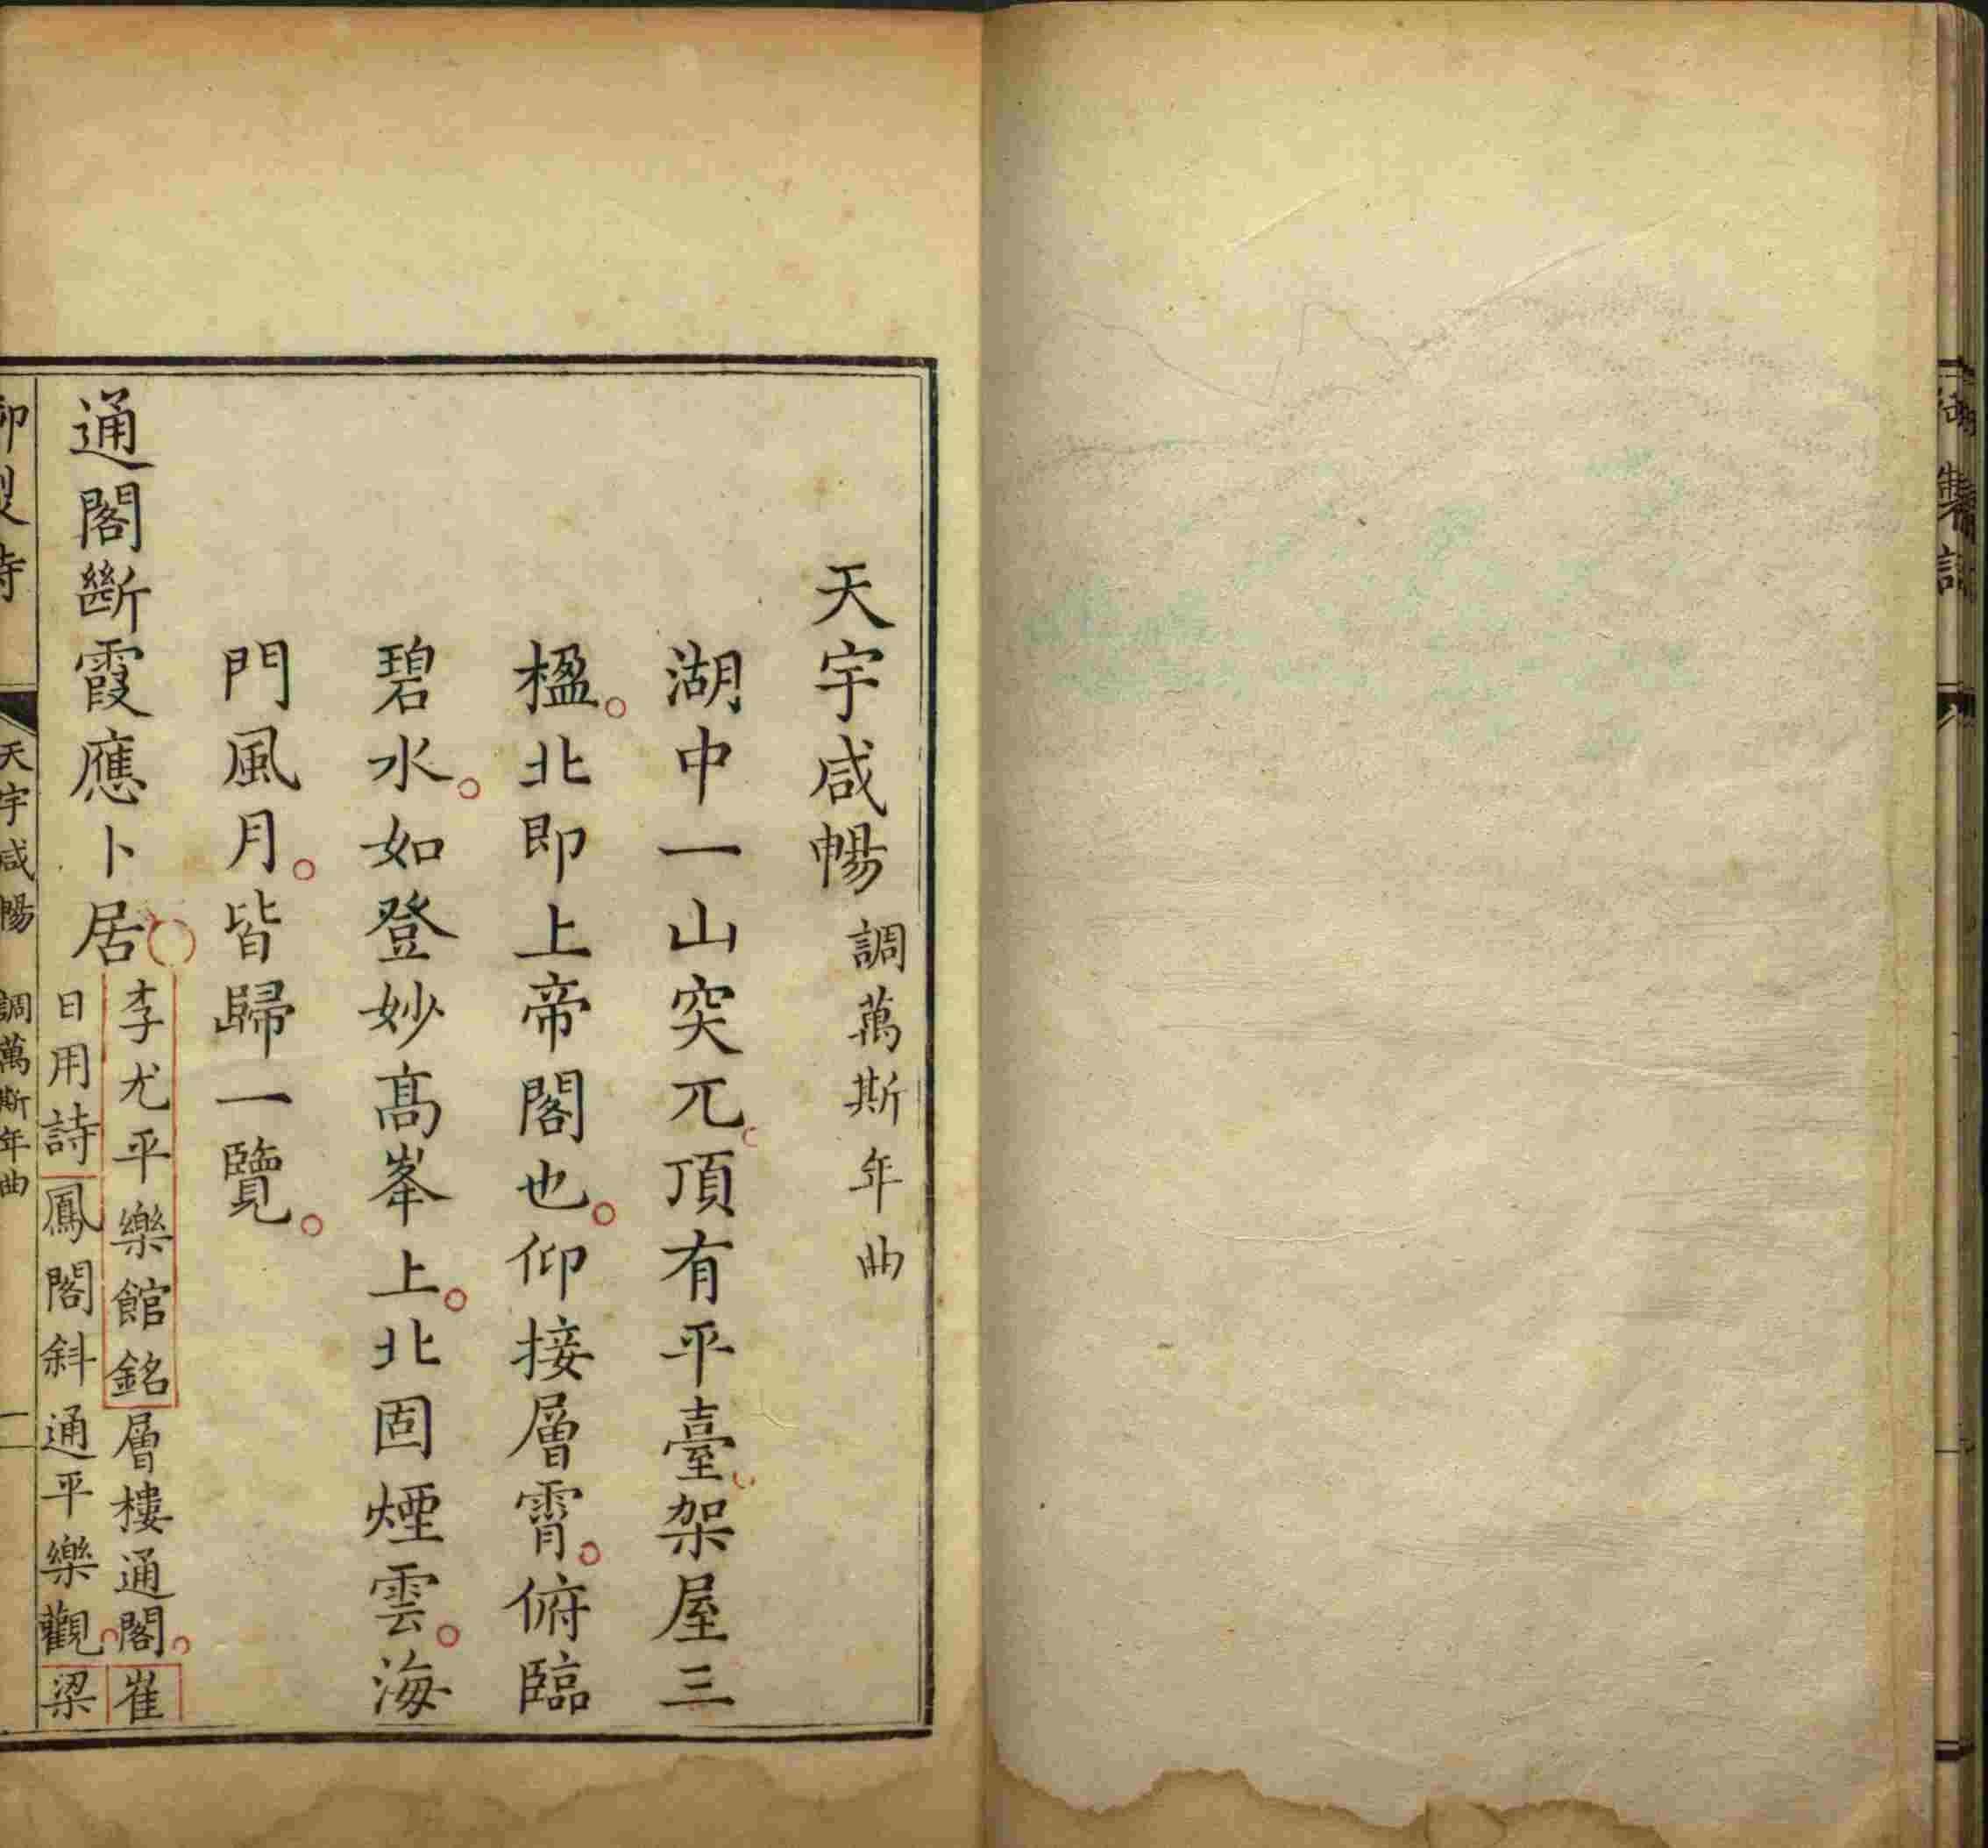 天宇咸暢 調萬斯年曲
湖中一山突兀頂有平臺架屋三
楹。北即上帝閣也。仰接層霄。俯臨
碧水。如登妙高峯上。北固煙雲。海
門風月。皆歸一覽。
通閣斷霞應卜居
李尤平樂館銘層樓通閣。崔
日用詩鳳閣斜通平樂觀。梁
御製詩 天宇咸暢 調萬斯年曲